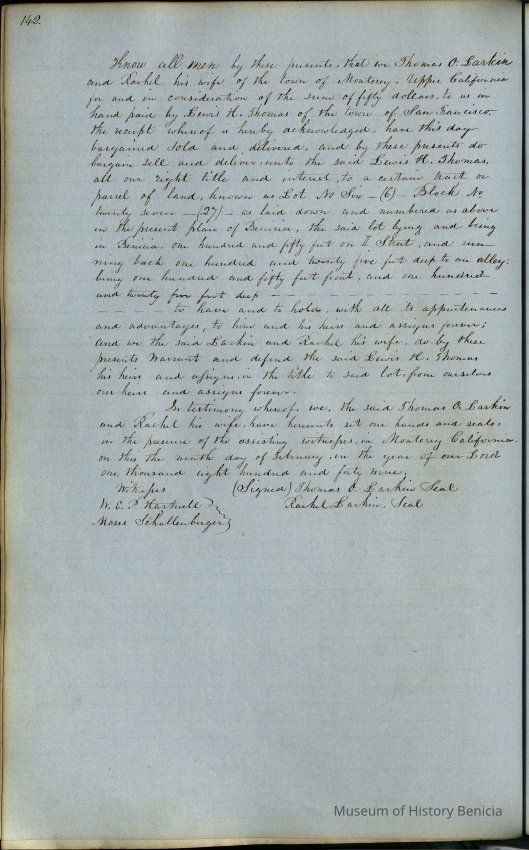 142.
Know all men by these presents, that we Thomas O. Larkin
and Rachel his wife of the town of Monterey, Upper California
for and in consideration of the sum of fifty dollars, to us in
hand paid by Lewis H. Thomas of the town of San Francisco,
the receipt whereof is herby acknowledged, have this day
bargained sold and delivered, and by these presents do
bargain sell and deliver, unto the said Lewis H. Thomas,
all our right title and interest, to a certain tract or
parcel of land, known as Lot No Six -(6)- Block No
twenty seven -(27)- as laid down and numbered as above
in the present plan of Benicia, the said lot lying and being
in Benicia, one hundred and fifty feet on Street, and run-
ning back one hundred and twenty five feet deep to an alley;
being one hundred and fifty feet front, and one hundred
and twenty five feet deep
to have and to hold, with all its appurtenances
and advantages, to him and his heirs and assigns forever;
and we the said Larkin and Rachel his wife, do by these
presents Warrant and defend the said Lewis H. Thomas
his heirs and assigns, in the title to said lot, from ourselves
our heirs and assigns forever.
In testimony whereof, we, the said Thomas O. Larkin
and Rachel his wife, have hereunto set our hands and seals,
in the presence of the assisting witnesses, in Monterey California,
on this the ninth day of February, in the year of our Lord
one thousand eight hundred and forty nine,
Witnesses (Signed) Thomas O. Larkin Seal
W. E. P. Hartnell } Rachel Larkin. Seal
Moses Schallenberger }
Museum of History Benicia